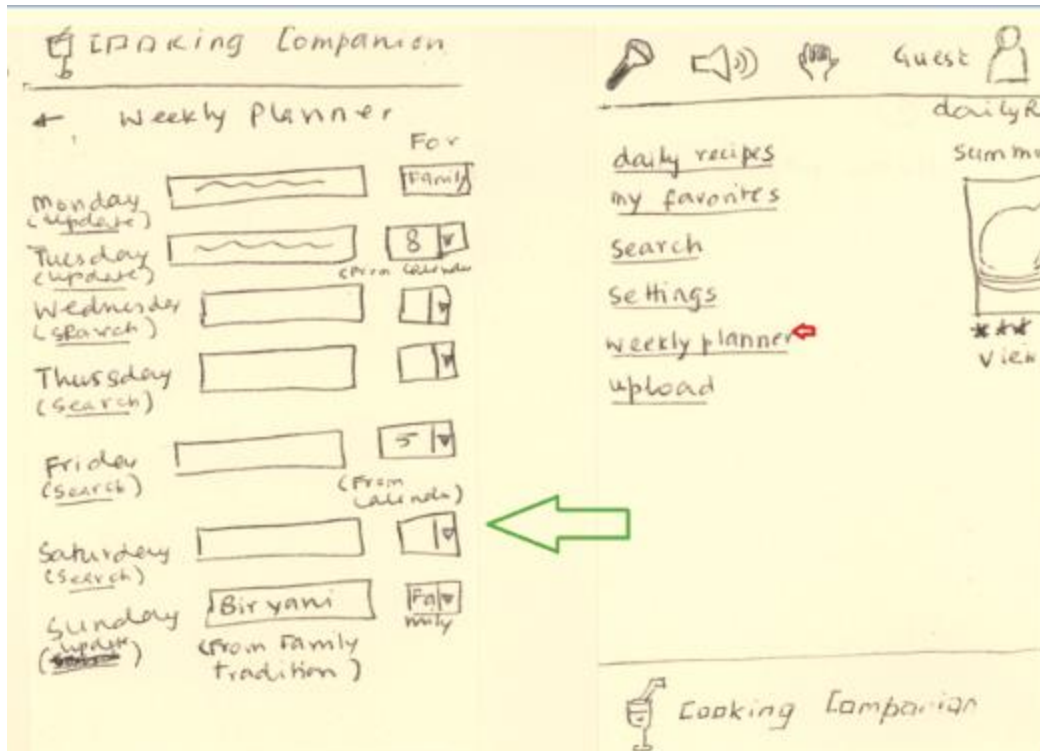 Cooking Companion
Weekly Planner
For
Monday
(update)
Family
Tuesday
(update)
8
(From Calenda
Wednesday
(search)
Thursday
(search)
Friday
(search)
5
(From
Calenda)
Saturday
(search)
Sunday
(update)
Biryani
(From Family
tradition)
Fa
mily
Guest
dailyR
daily recipes
Summa
my favorites
search
settings
weekly planner
***
View
upload
Cooking Companion